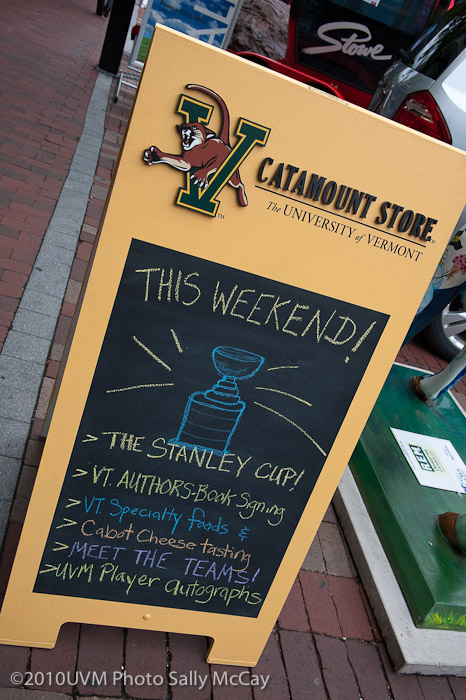 Stowe
V
TM
CATAMOUNT STORE
The UNIVERSITY of VERMONT
THIS WEEKEND!
> THE STANLEY CUP!
> VT. AUTHORS-Book Signing
> VT. Specialty foods &
> Cabot Cheese tasting
> MEET THE TEAMS!
> UVM Player Autographs
©2010UVM Photo Sally McCay